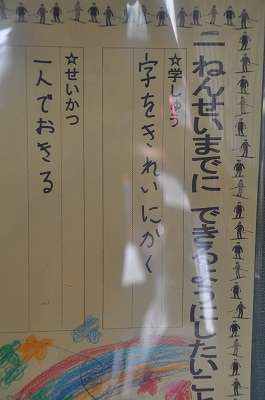 二ねんせいまでに できるようにしたいこ
☆学しゅう
字をきれいにかく
☆せいかつ
一人でおきる